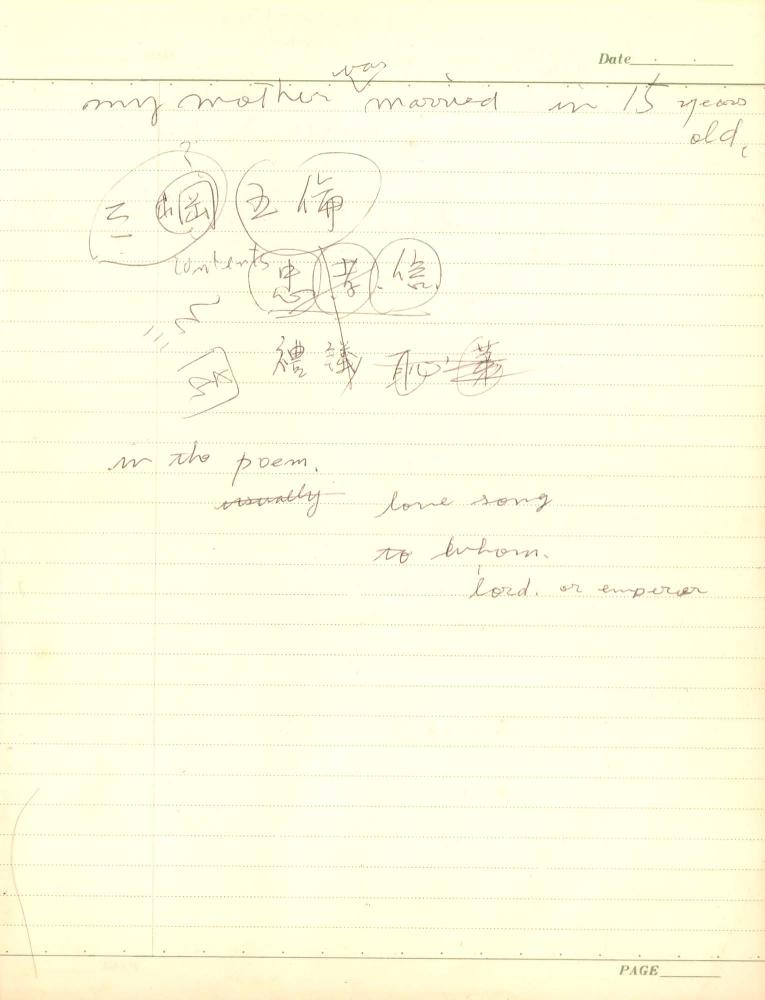 Date
my mother was married in 15 years
old,
?
三綱 五倫
contents 忠 孝. 信.
三
禮 議 恥
in the poem.
usually love song
to whom.
lord. or emperor
PAGE